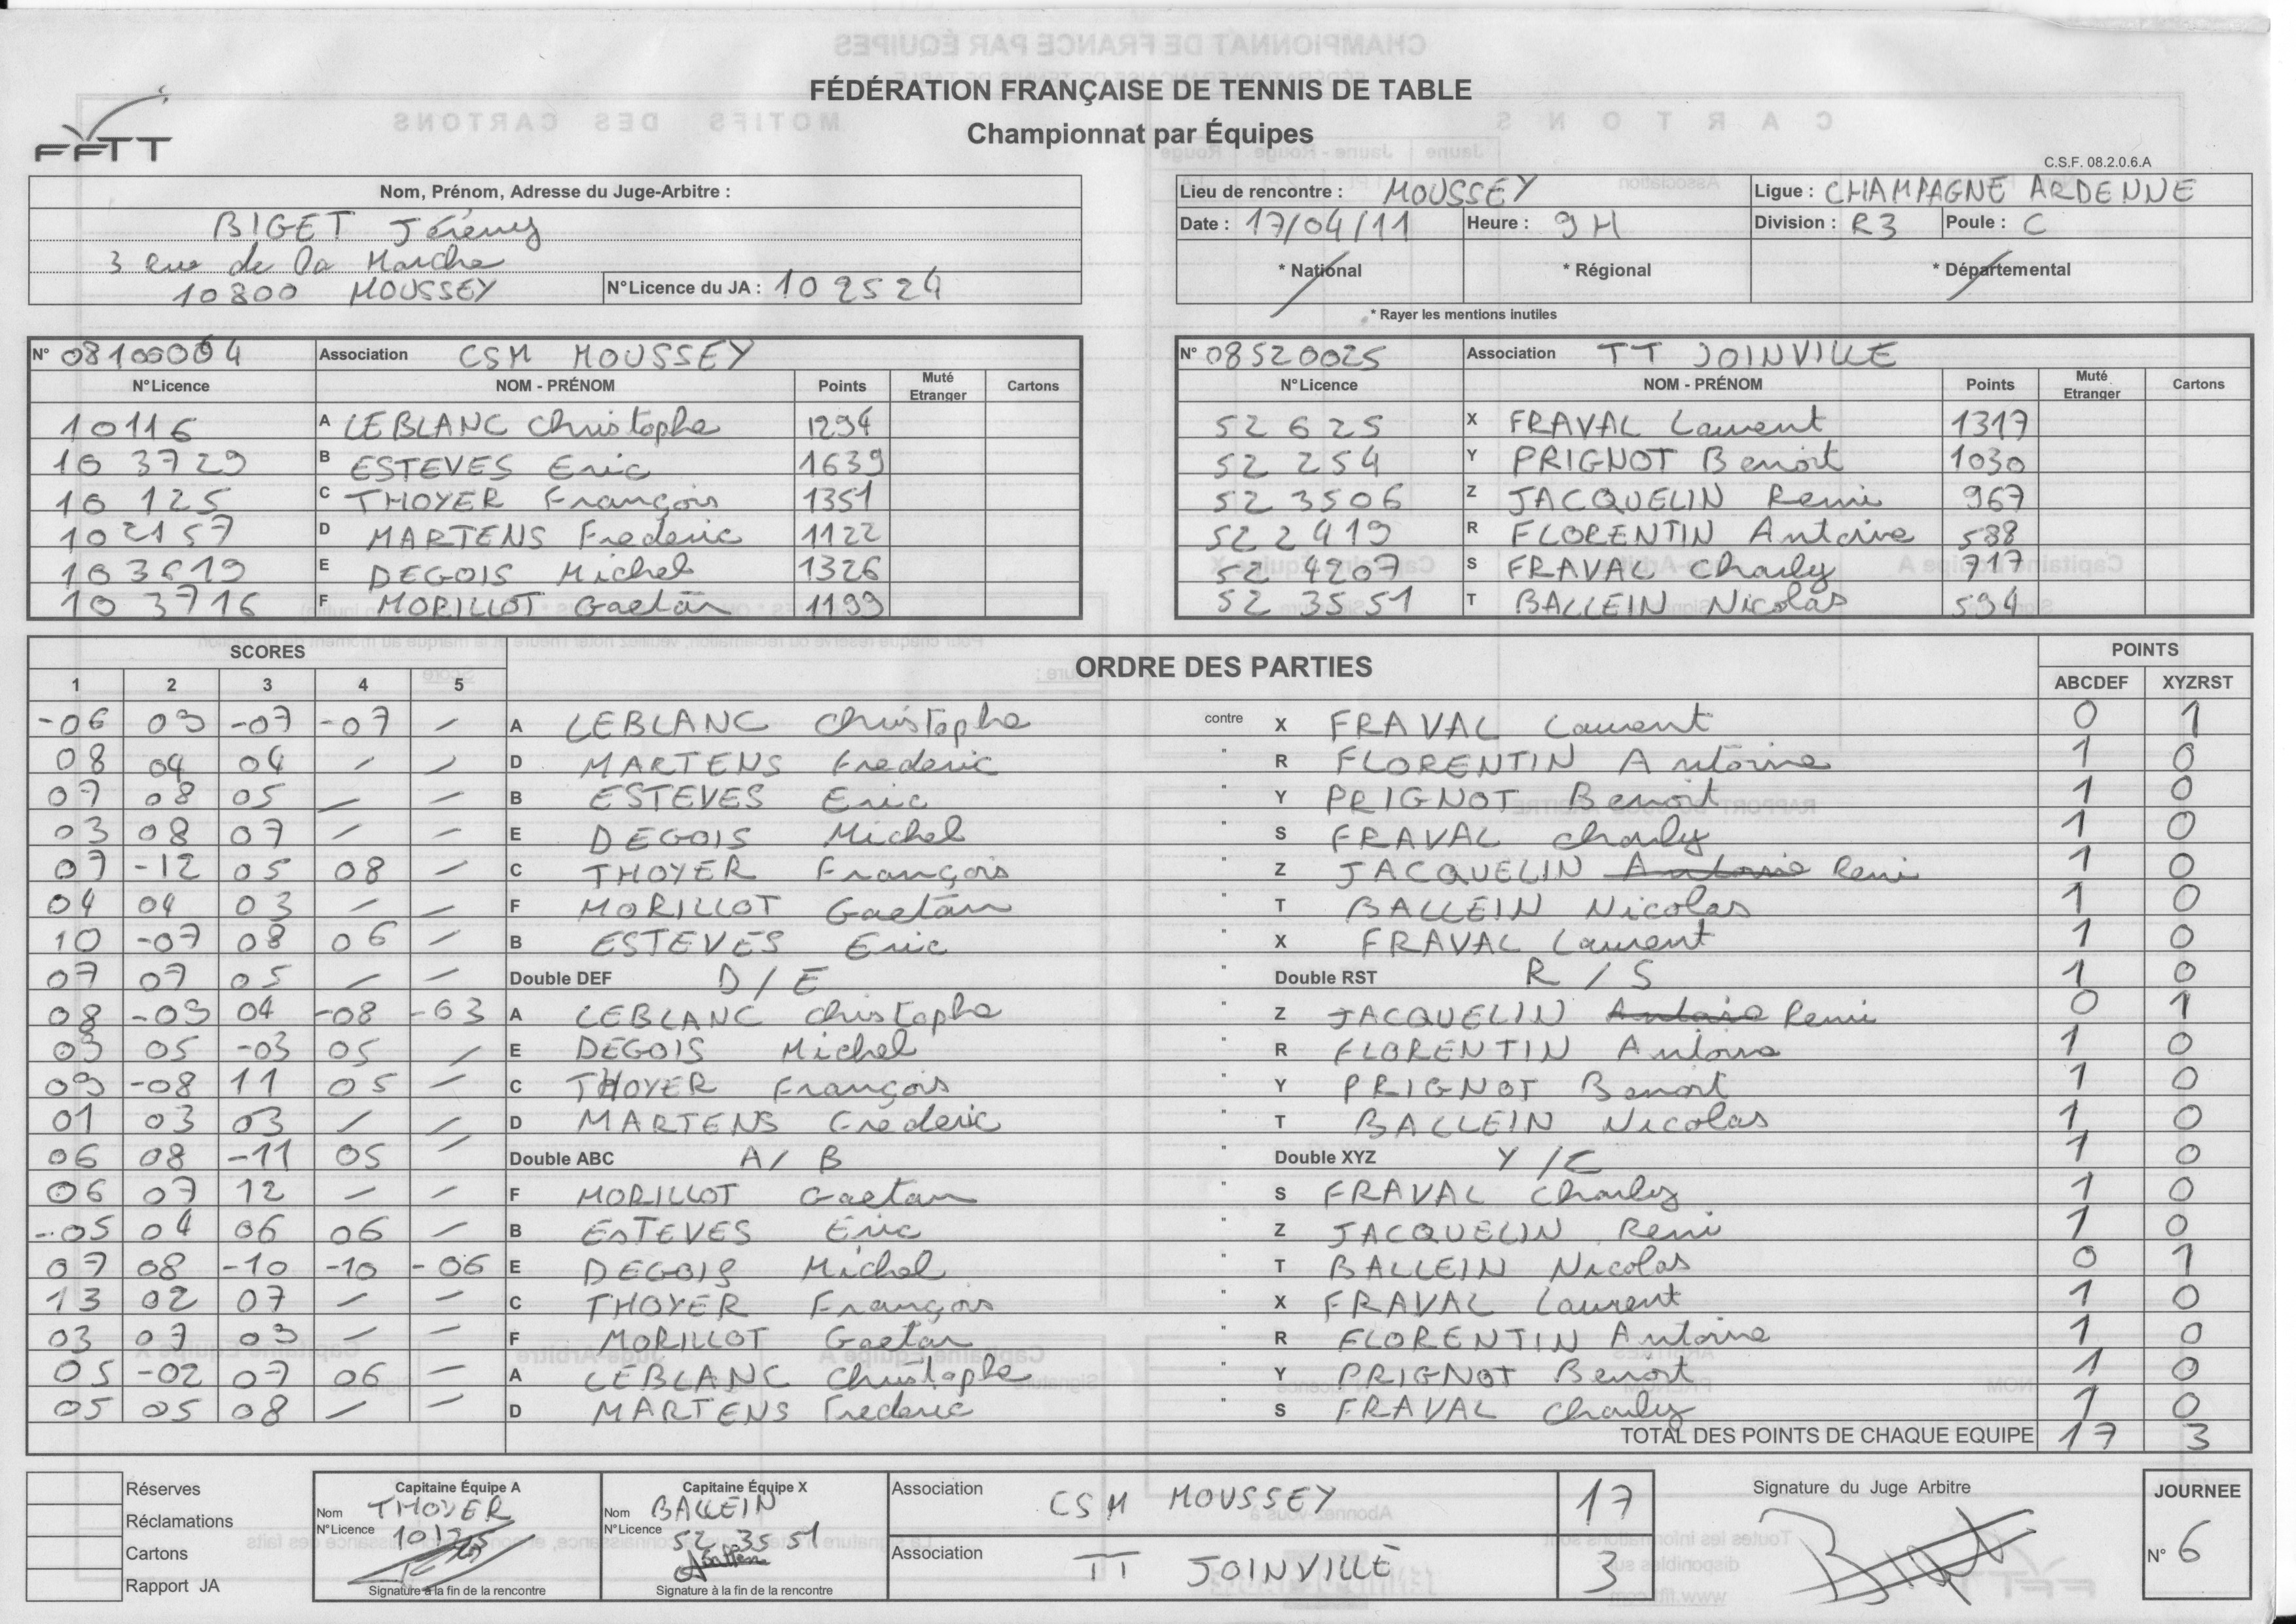 FÉDÉRATION FRANÇAISE DE TENNIS DE TABLE
Championnat par Équipes
FFTT
C.S.F. 08.2.0.6.A
Nom, Prénom, Adresse du Juge-Arbitre :
BIGET Jérémy
3 rue de la Marche
10800 MOUSSEY N°Licence du JA : 102524
Lieu de rencontre : MOUSSEY Ligue : CHAMPAGNE ARDENNE
Date : 17/04/11 Heure : 9H Division : R3 Poule : C
* National * Régional * Départemental
* Rayer les mentions inutiles
N° 08100064 Association CSM MOUSSEY
N°Licence NOM - PRÉNOM Points Muté Etranger Cartons
10116 A LEBLANC Christophe 1294
10 3729 B ESTEVES Eric 1639
10 125 C THOYER François 1351
102157 D MARTENS Frederic 1122
103619 E DEGOIS Michel 1326
10 3716 F MORILLOT Gaetan 1199
N° 08520025 Association TT JOINVILLE
N°Licence NOM - PRÉNOM Points Muté Etranger Cartons
52 625 X FRAVAL Laurent 1317
52 254 Y PRIGNOT Benoit 1030
52 3506 Z JACQUELIN Remi 967
52 2419 R FLORENTIN Antoine 588
52 4207 S FRAVAL Charly 717
52 3551 T BALLEIN Nicolas 594
SCORES ORDRE DES PARTIES POINTS
1 2 3 4 5 ABCDEF XYZRST
-06 03 -07 -07 - A LEBLANC Christophe contre X FRAVAL Laurent 0 1
08 04 04 - - D MARTENS Frederic " R FLORENTIN Antoine 1 0
07 08 05 - - B ESTEVES Eric " Y PRIGNOT Benoit 1 0
03 08 07 - - E DEGOIS Michel " S FRAVAL Charly 1 0
07 -12 05 08 - C THOYER François " Z JACQUELIN Antoine Remi 1 0
04 04 03 - - F MORILLOT Gaetan " T BALLEIN Nicolas 1 0
10 -07 08 06 - B ESTEVES Eric " X FRAVAL Laurent 1 0
07 07 05 - - Double DEF D/E " Double RST R/S 1 0
08 -09 04 -08 -03 A LEBLANC Christophe " Z JACQUELIN Antoine Remi 0 1
03 05 -03 05 - E DEGOIS Michel " R FLORENTIN Antoine 1 0
09 -08 11 05 - C THOYER François " Y PRIGNOT Benoit 1 0
01 03 03 - - D MARTENS Frederic " T BALLEIN Nicolas 1 0
06 08 -11 05 - Double ABC A/B " Double XYZ Y/Z 1 0
06 07 12 - - F MORILLOT Gaetan " S FRAVAL Charly 1 0
-05 04 06 06 - B ESTEVES Eric " Z JACQUELIN Remi 1 0
07 08 -10 -10 -06 E DEGOIS Michel " T BALLEIN Nicolas 0 1
13 02 07 - - C THOYER François " X FRAVAL Laurent 1 0
03 07 03 - - F MORILLOT Gaetan " R FLORENTIN Antoine 1 0
05 -02 07 06 - A LEBLANC Christophe " Y PRIGNOT Benoit 1 0
05 05 08 - - D MARTENS Frederic " S FRAVAL Charly 1 0
TOTAL DES POINTS DE CHAQUE EQUIPE 17 3
Réserves
Réclamations
Cartons
Rapport JA
Capitaine Équipe A
Nom THOYER
N°Licence 10125
Signature à la fin de la rencontre
Capitaine Équipe X
Nom BALLEIN
N°Licence 52 3551
Signature à la fin de la rencontre
Association CSM MOUSSEY 17
Association TT JOINVILLE 3
Signature du Juge Arbitre
JOURNEE
N° 6